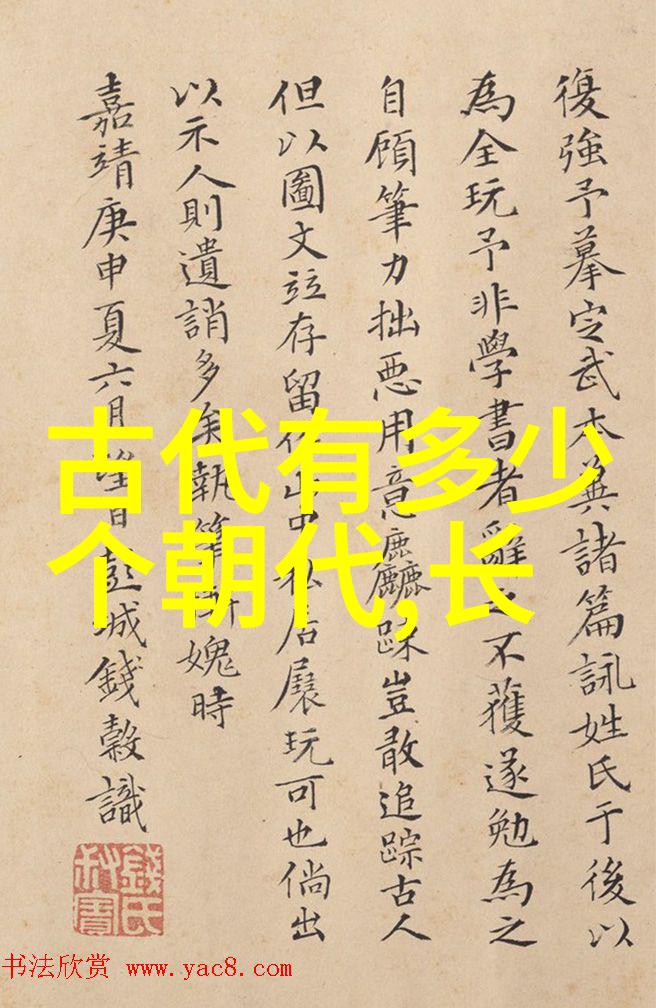 復強予摹定武本兼諸篇詠姓氏于後以
為全玩予非學書者辭之不獲遂勉為之
自顧筆力拙惡用意麤踈豈敢追踪古人
但以圖文竝存留作山中私居展玩可也倘出
以示人則遺誚多矣執筆慚媿時
嘉靖庚申夏六月望日彭城錢穀識
錢氏
古代有多少
个朝代,长
书法欣赏 www.yac8.com